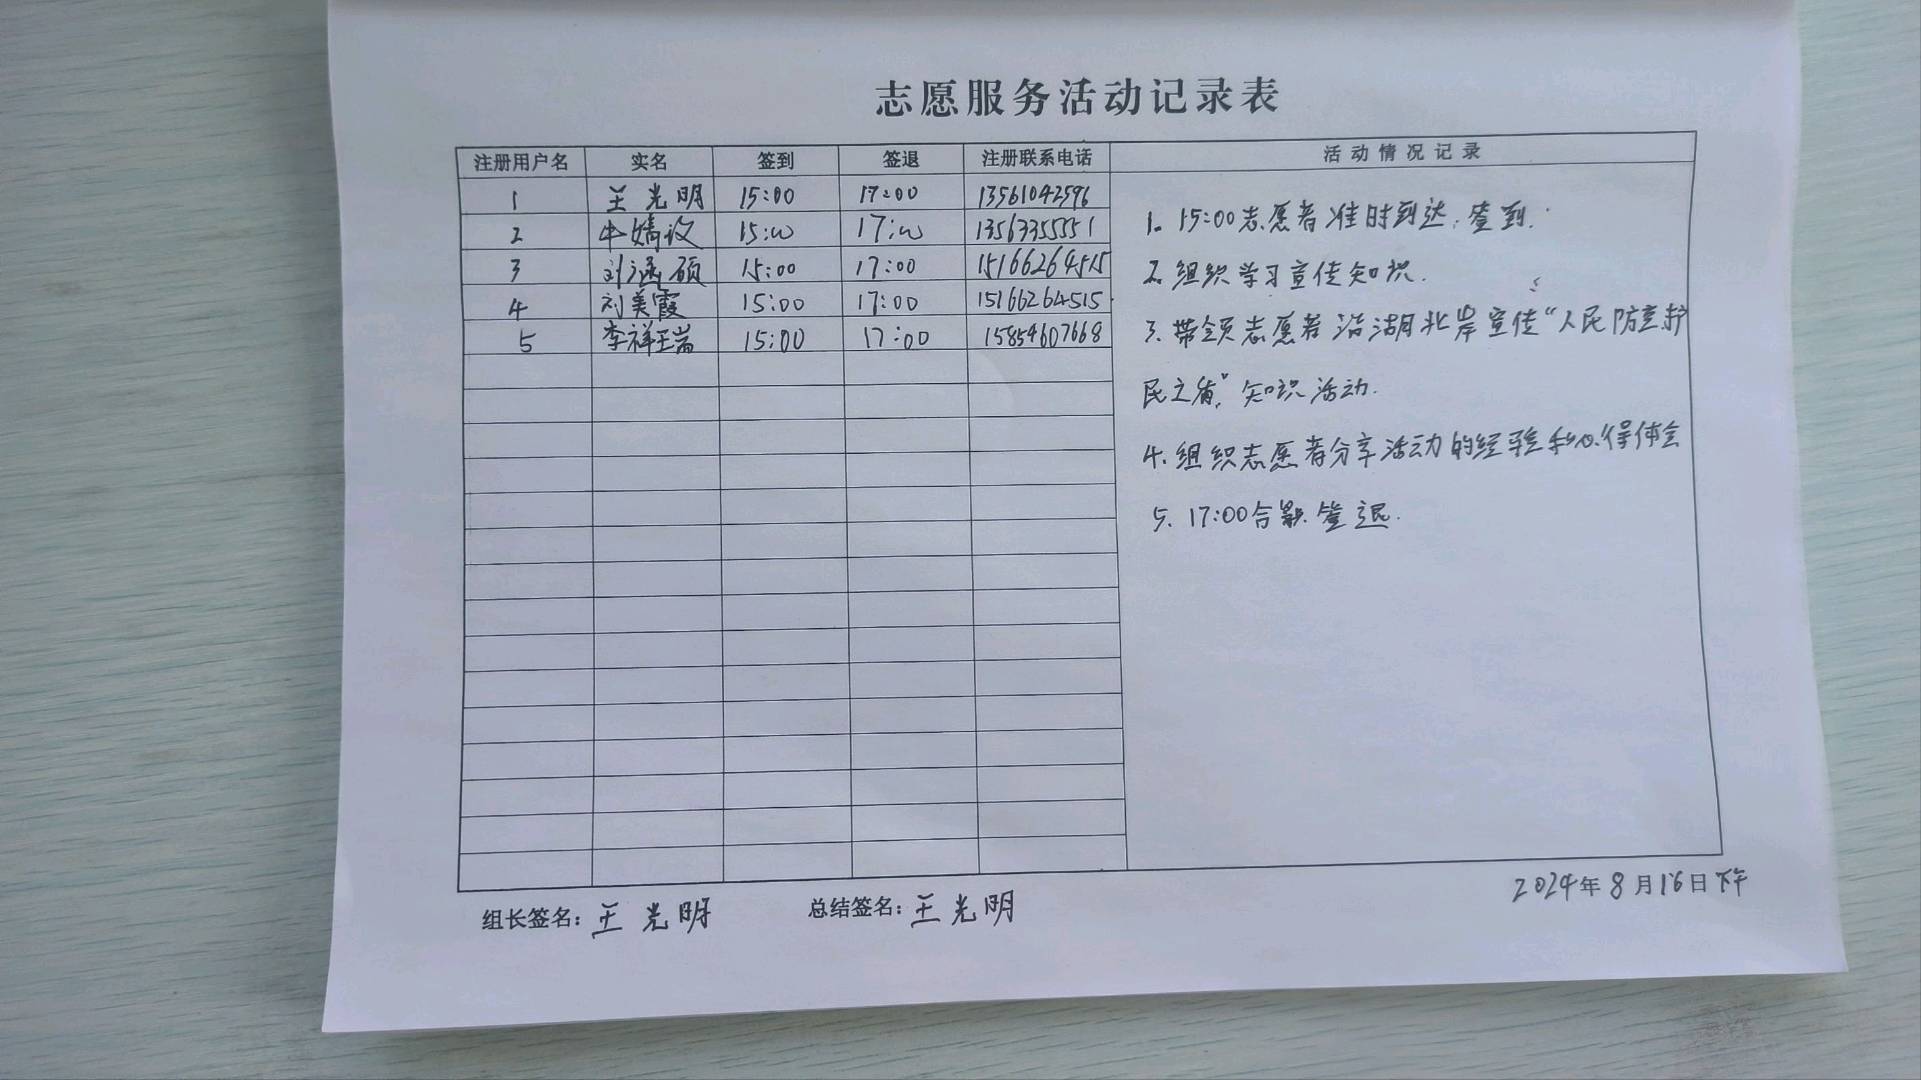 志愿服务活动记录表
注册用户名 实名 签到 签退 注册联系电话 活动情况记录
1 王光明 15:00 17:00 13561042596
2 牛婧议 15:00 17:00 13563355551
3 刘涵硕 15:00 17:00 15166264515
4 刘美霞 15:00 17:00 15166264515
5 李祥瑞 15:00 17:00 15854607668
1. 15:00志愿者准时到达,签到.
2. 组织学习宣传知识.
3. 带领志愿者沿湖北岸宣传“人民防空护
民之盾”知识活动.
4. 组织志愿者分享活动的经验和心得体会
5. 17:00合影.签退.
组长签名:王光明 总结签名:王光明
2024年8月16日下午